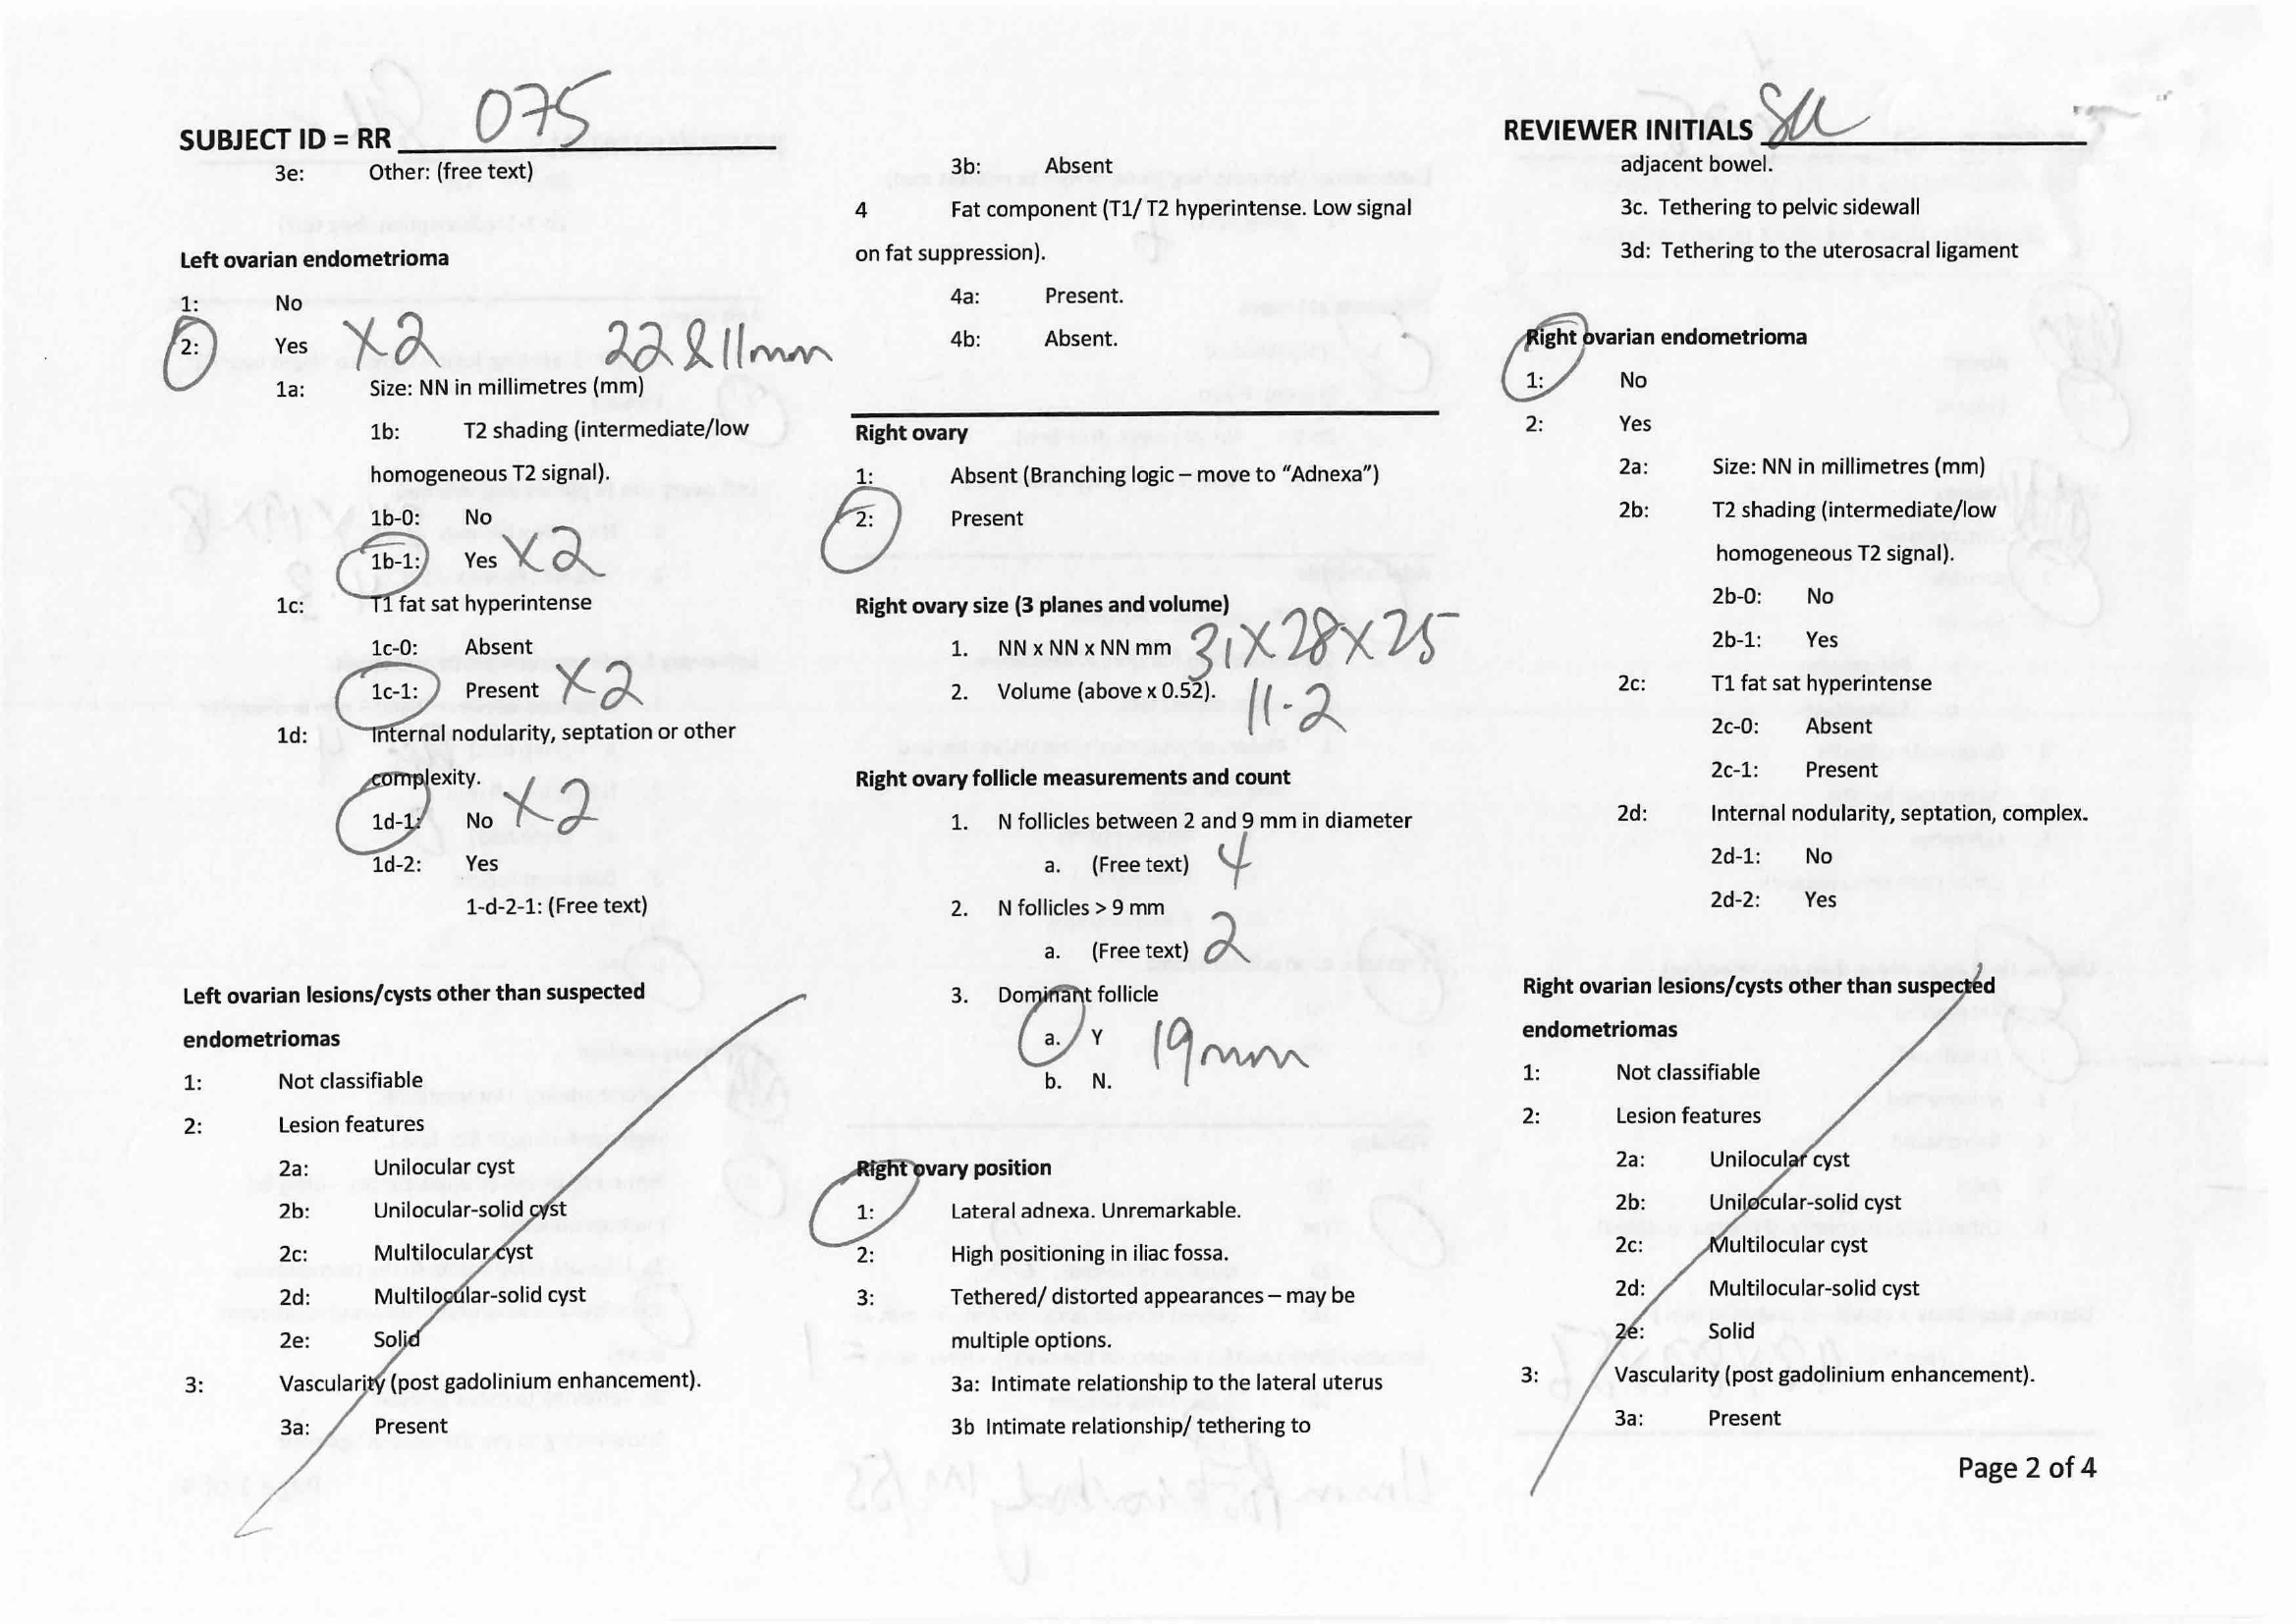 SUBJECT ID = RR 075
3e: Other: (free text)
Left ovarian endometrioma
1: No
2: Yes X2 22 & 11mm
1a: Size: NN in millimetres (mm)
1b: T2 shading (intermediate/low
homogeneous T2 signal).
1b-0: No
1b-1: Yes X2
1c: T1 fat sat hyperintense
1c-0: Absent
1c-1: Present X2
1d: Internal nodularity, septation or other
complexity.
1d-1: No X2
1d-2: Yes
1-d-2-1: (Free text)
Left ovarian lesions/cysts other than suspected
endometriomas
1: Not classifiable
2: Lesion features
2a: Unilocular cyst
2b: Unilocular-solid cyst
2c: Multilocular cyst
2d: Multilocular-solid cyst
2e: Solid
3: Vascularity (post gadolinium enhancement).
3a: Present
3b: Absent
4 Fat component (T1/ T2 hyperintense. Low signal
on fat suppression).
4a: Present.
4b: Absent.
Right ovary
1: Absent (Branching logic – move to “Adnexa”)
2: Present
Right ovary size (3 planes and volume)
1. NN x NN x NN mm 31X28X25
2. Volume (above x 0.52). 11.2
Right ovary follicle measurements and count
1. N follicles between 2 and 9 mm in diameter
a. (Free text) 4
2. N follicles > 9 mm
a. (Free text) 2
3. Dominant follicle
a. Y 19mm
b. N.
Right ovary position
1: Lateral adnexa. Unremarkable.
2: High positioning in iliac fossa.
3: Tethered/ distorted appearances – may be
multiple options.
3a: Intimate relationship to the lateral uterus
3b Intimate relationship/ tethering to
REVIEWER INITIALS
adjacent bowel.
3c. Tethering to pelvic sidewall
3d: Tethering to the uterosacral ligament
Right ovarian endometrioma
1: No
2: Yes
2a: Size: NN in millimetres (mm)
2b: T2 shading (intermediate/low
homogeneous T2 signal).
2b-0: No
2b-1: Yes
2c: T1 fat sat hyperintense
2c-0: Absent
2c-1: Present
2d: Internal nodularity, septation, complex.
2d-1: No
2d-2: Yes
Right ovarian lesions/cysts other than suspected
endometriomas
1: Not classifiable
2: Lesion features
2a: Unilocular cyst
2b: Unilocular-solid cyst
2c: Multilocular cyst
2d: Multilocular-solid cyst
2e: Solid
3: Vascularity (post gadolinium enhancement).
3a: Present
Page 2 of 4